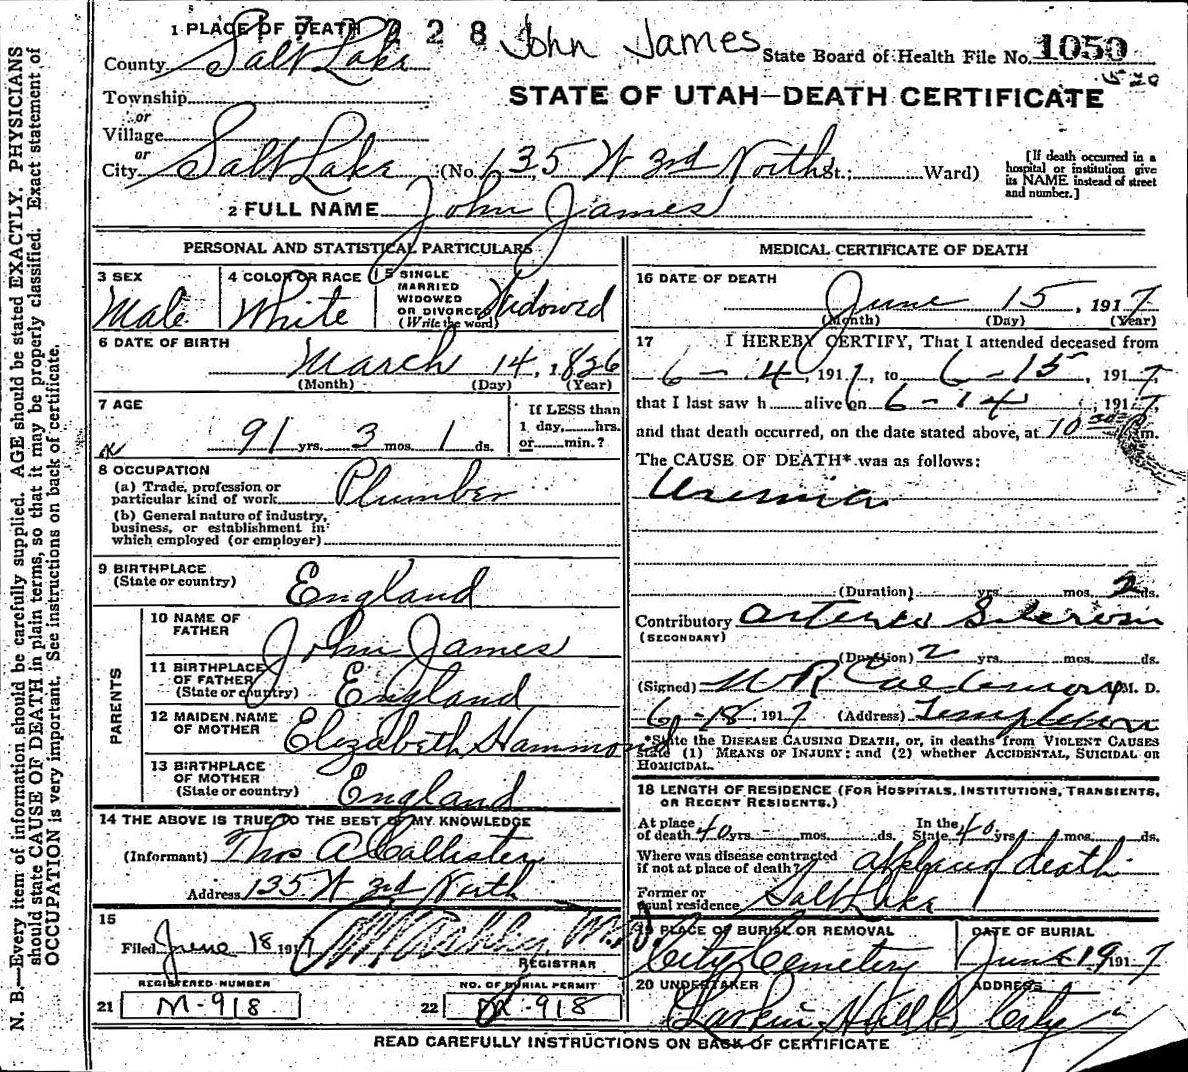 N. B.—Every item of information should be carefully supplied. AGE should be stated EXACTLY. PHYSICIANS
should state CAUSE OF DEATH in plain terms, so that it may be properly classified. Exact statement of
OCCUPATION is very important. See instructions on back of certificate.
1 PLACE OF DEATH 228 John James State Board of Health File No. 1050
County Salt Lake
STATE OF UTAH—DEATH CERTIFICATE
Township
or
Village
or
City Salt Lake (No. 135 W 3rd North St.; Ward)
[If death occurred in a
hospital or institution give
its NAME instead of street
and number.]
2 FULL NAME John James
PERSONAL AND STATISTICAL PARTICULARS
3 SEX
Male
4 COLOR OR RACE
White
5 SINGLE
MARRIED
WIDOWED
OR DIVORCED
(Write the word)
Widowed
6 DATE OF BIRTH
March 14, 1826
(Month) (Day) (Year)
7 AGE
91 yrs. 3 mos. 1 ds.
If LESS than
1 day, hrs.
or min.?
8 OCCUPATION
(a) Trade, profession or
particular kind of work Plumber
(b) General nature of industry,
business, or establishment in
which employed (or employer)
9 BIRTHPLACE
(State or country) England
PARENTS
10 NAME OF
FATHER John James
11 BIRTHPLACE
OF FATHER
(State or country) England
12 MAIDEN NAME
OF MOTHER Elizabeth Hammond
13 BIRTHPLACE
OF MOTHER
(State or country) England
14 THE ABOVE IS TRUE TO THE BEST OF MY KNOWLEDGE
(Informant) Thos A Callister
Address 135 W 3rd North
15
Filed June 18 1917 M.D.
REGISTRAR
REGISTERED NUMBER
21 M-918
NO. OF BURIAL PERMIT
22 -918
MEDICAL CERTIFICATE OF DEATH
16 DATE OF DEATH
June 15, 1917
(Month) (Day) (Year)
17 I HEREBY CERTIFY, That I attended deceased from
6-4, 1917, to 6-15, 1917,
that I last saw h alive on 6-14, 1917,
and that death occurred, on the date stated above, at 10 m.
The CAUSE OF DEATH* was as follows:
Uremia
(Duration) yrs. mos. 2 ds.
Contributory Arterio Sclerosis
(SECONDARY)
(Duration) 2 yrs. mos. ds.
(Signed) M. D.
6-18, 1917 (Address) Templeton
*State the DISEASE CAUSING DEATH, or, in deaths from VIOLENT CAUSES
state (1) MEANS OF INJURY; and (2) whether ACCIDENTAL, SUICIDAL OR
HOMICIDAL.
18 LENGTH OF RESIDENCE (FOR HOSPITALS, INSTITUTIONS, TRANSIENTS,
OR RECENT RESIDENTS.)
At place
of death 40 yrs. mos. ds. In the
State 40 yrs. mos. ds.
Where was disease contracted
if not at place of death? at place of death
Former or
usual residence Salt Lake
19 PLACE OF BURIAL OR REMOVAL
City Cemetery
DATE OF BURIAL
June 19 1917
20 UNDERTAKER
Larkin Hull
ADDRESS
City
READ CAREFULLY INSTRUCTIONS ON BACK OF CERTIFICATE